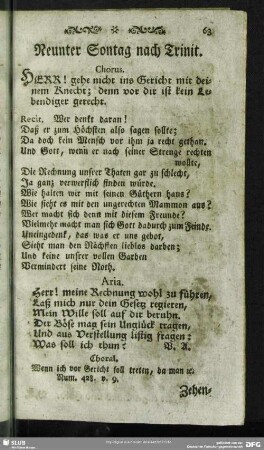 ins Gericht 63
Neunter Sontag nach Trinit.
Chorus.
HErr! gehe nicht ins Gericht mit dei-
nem Knecht; denn vor dir ist kein Le-
bendiger gerecht.
Recit. Wer denkt daran!
Daß er zum Höchsten also sagen sollte;
Da doch kein Mensch vor ihm ja recht gethan.
Und Gott, wenn er nach seiner Strenge rechten
wollte,
Die Rechnung unsrer Thaten gar zu schlecht,
Ja ganz verwerflich finden würde.
Wie halten wir mit seinen Güthern haus?
Wie sieht es mit den ungerechten Mammon aus?
Wer macht sich denn mit diesem Freunde?
Vielmehr macht man sich Gott dadurch zum Feinde.
Uneingedenk, das was er uns gebot,
Sieht man den Nächsten lieblos darben;
Und keine unsrer vollen Garben
Vermindert seine Noth.
Aria.
Herr! meine Rechnung wohl zu führen,
Laß mich nur dein Gesetz regieren,
Mein Wille soll auf dir beruhn.
Der Böse mag sein Unglück tragen,
Und aus Verstellung listig fragen:
Was soll ich thun? V. A.
Choral.
Wenn ich vor Gericht soll treten, da man ꝛc.
Num. 428. v. 9.
Zehen-
SLUB